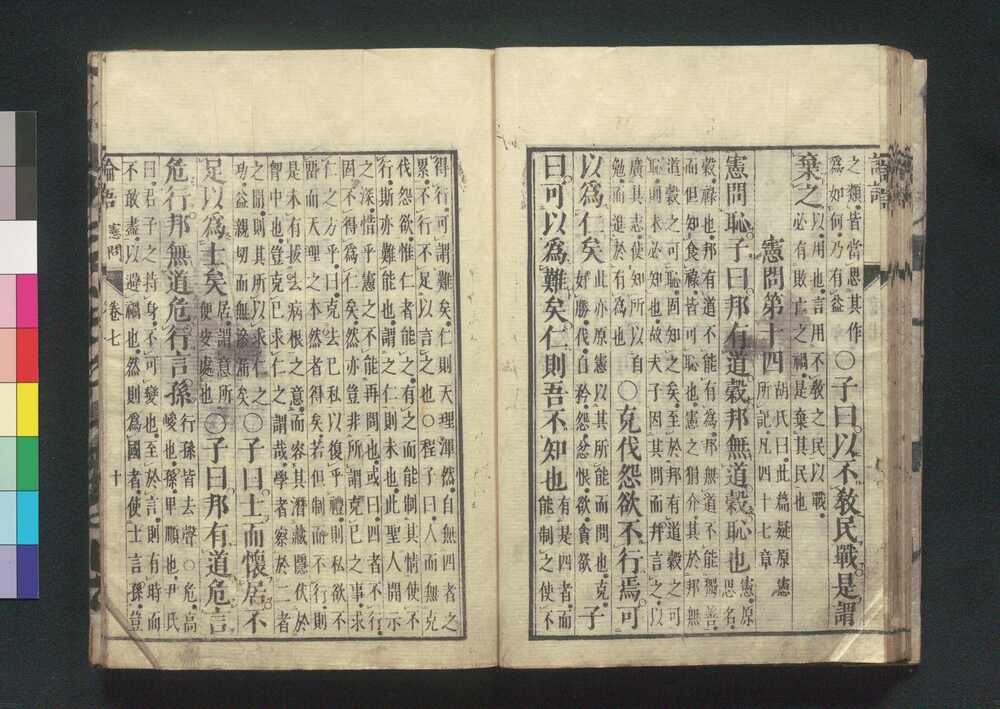 之類皆當思其作為如何乃有益○子曰以不教民戰是謂
棄之以用也言用不教之民以戰必有敗亡之禍是棄其民也
憲問第十四胡氏曰此篇疑原憲所記凡四十七章
憲問恥子曰邦有道穀邦無道穀恥也憲原思名
穀祿也邦有道不能有為邦無道不能獨善
而但知食祿皆可恥也憲之狷介其於邦無
道穀之可恥固知之矣至於邦有道穀之可
恥則未必知也故夫子因其問而并言之以
廣其志使知所以自勉而進於有為也○克伐怨欲不行焉可
以為仁矣此亦原憲以其所能而問也克好勝伐自矜怨忿恨欲貪欲子
曰可以為難矣仁則吾不知也有是四者而能制之使不
得行可謂難矣仁則天理渾然自無四者之
累不行不足以言之也○程子曰人而無克
伐怨欲惟仁者能之有之而能制其情使不
行斯亦難能也謂之仁則未也此聖人開示
之深惜乎憲之不能再問也或曰四者不行
固不得為仁矣然亦豈非所謂克己之事求
仁之方乎曰克去己私以復乎禮則私欲不
留而天理之本然者得矣若但制而不行則
是未有拔去病根之意而容其潛藏隱伏於
胷中也豈克己求仁之謂哉學者察於二者
之間則其所以求仁之功益親切而無滲漏矣○子曰士而懷居不
足以為士矣居謂意所便安處也○子曰邦有道危言
危行邦無道危行言孫行孫皆去聲○危高峻也孫卑順也尹氏
曰君子之持身不可變也至於言則有時而
不敢盡以避禍也然則為國者使士言孫豈
論語 憲問 卷七 十